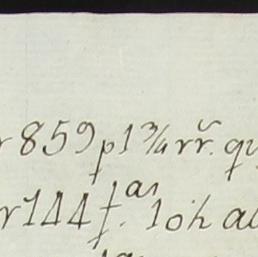 r 859 p 1 3/4 rr. qu
r 144 f.as 10h au